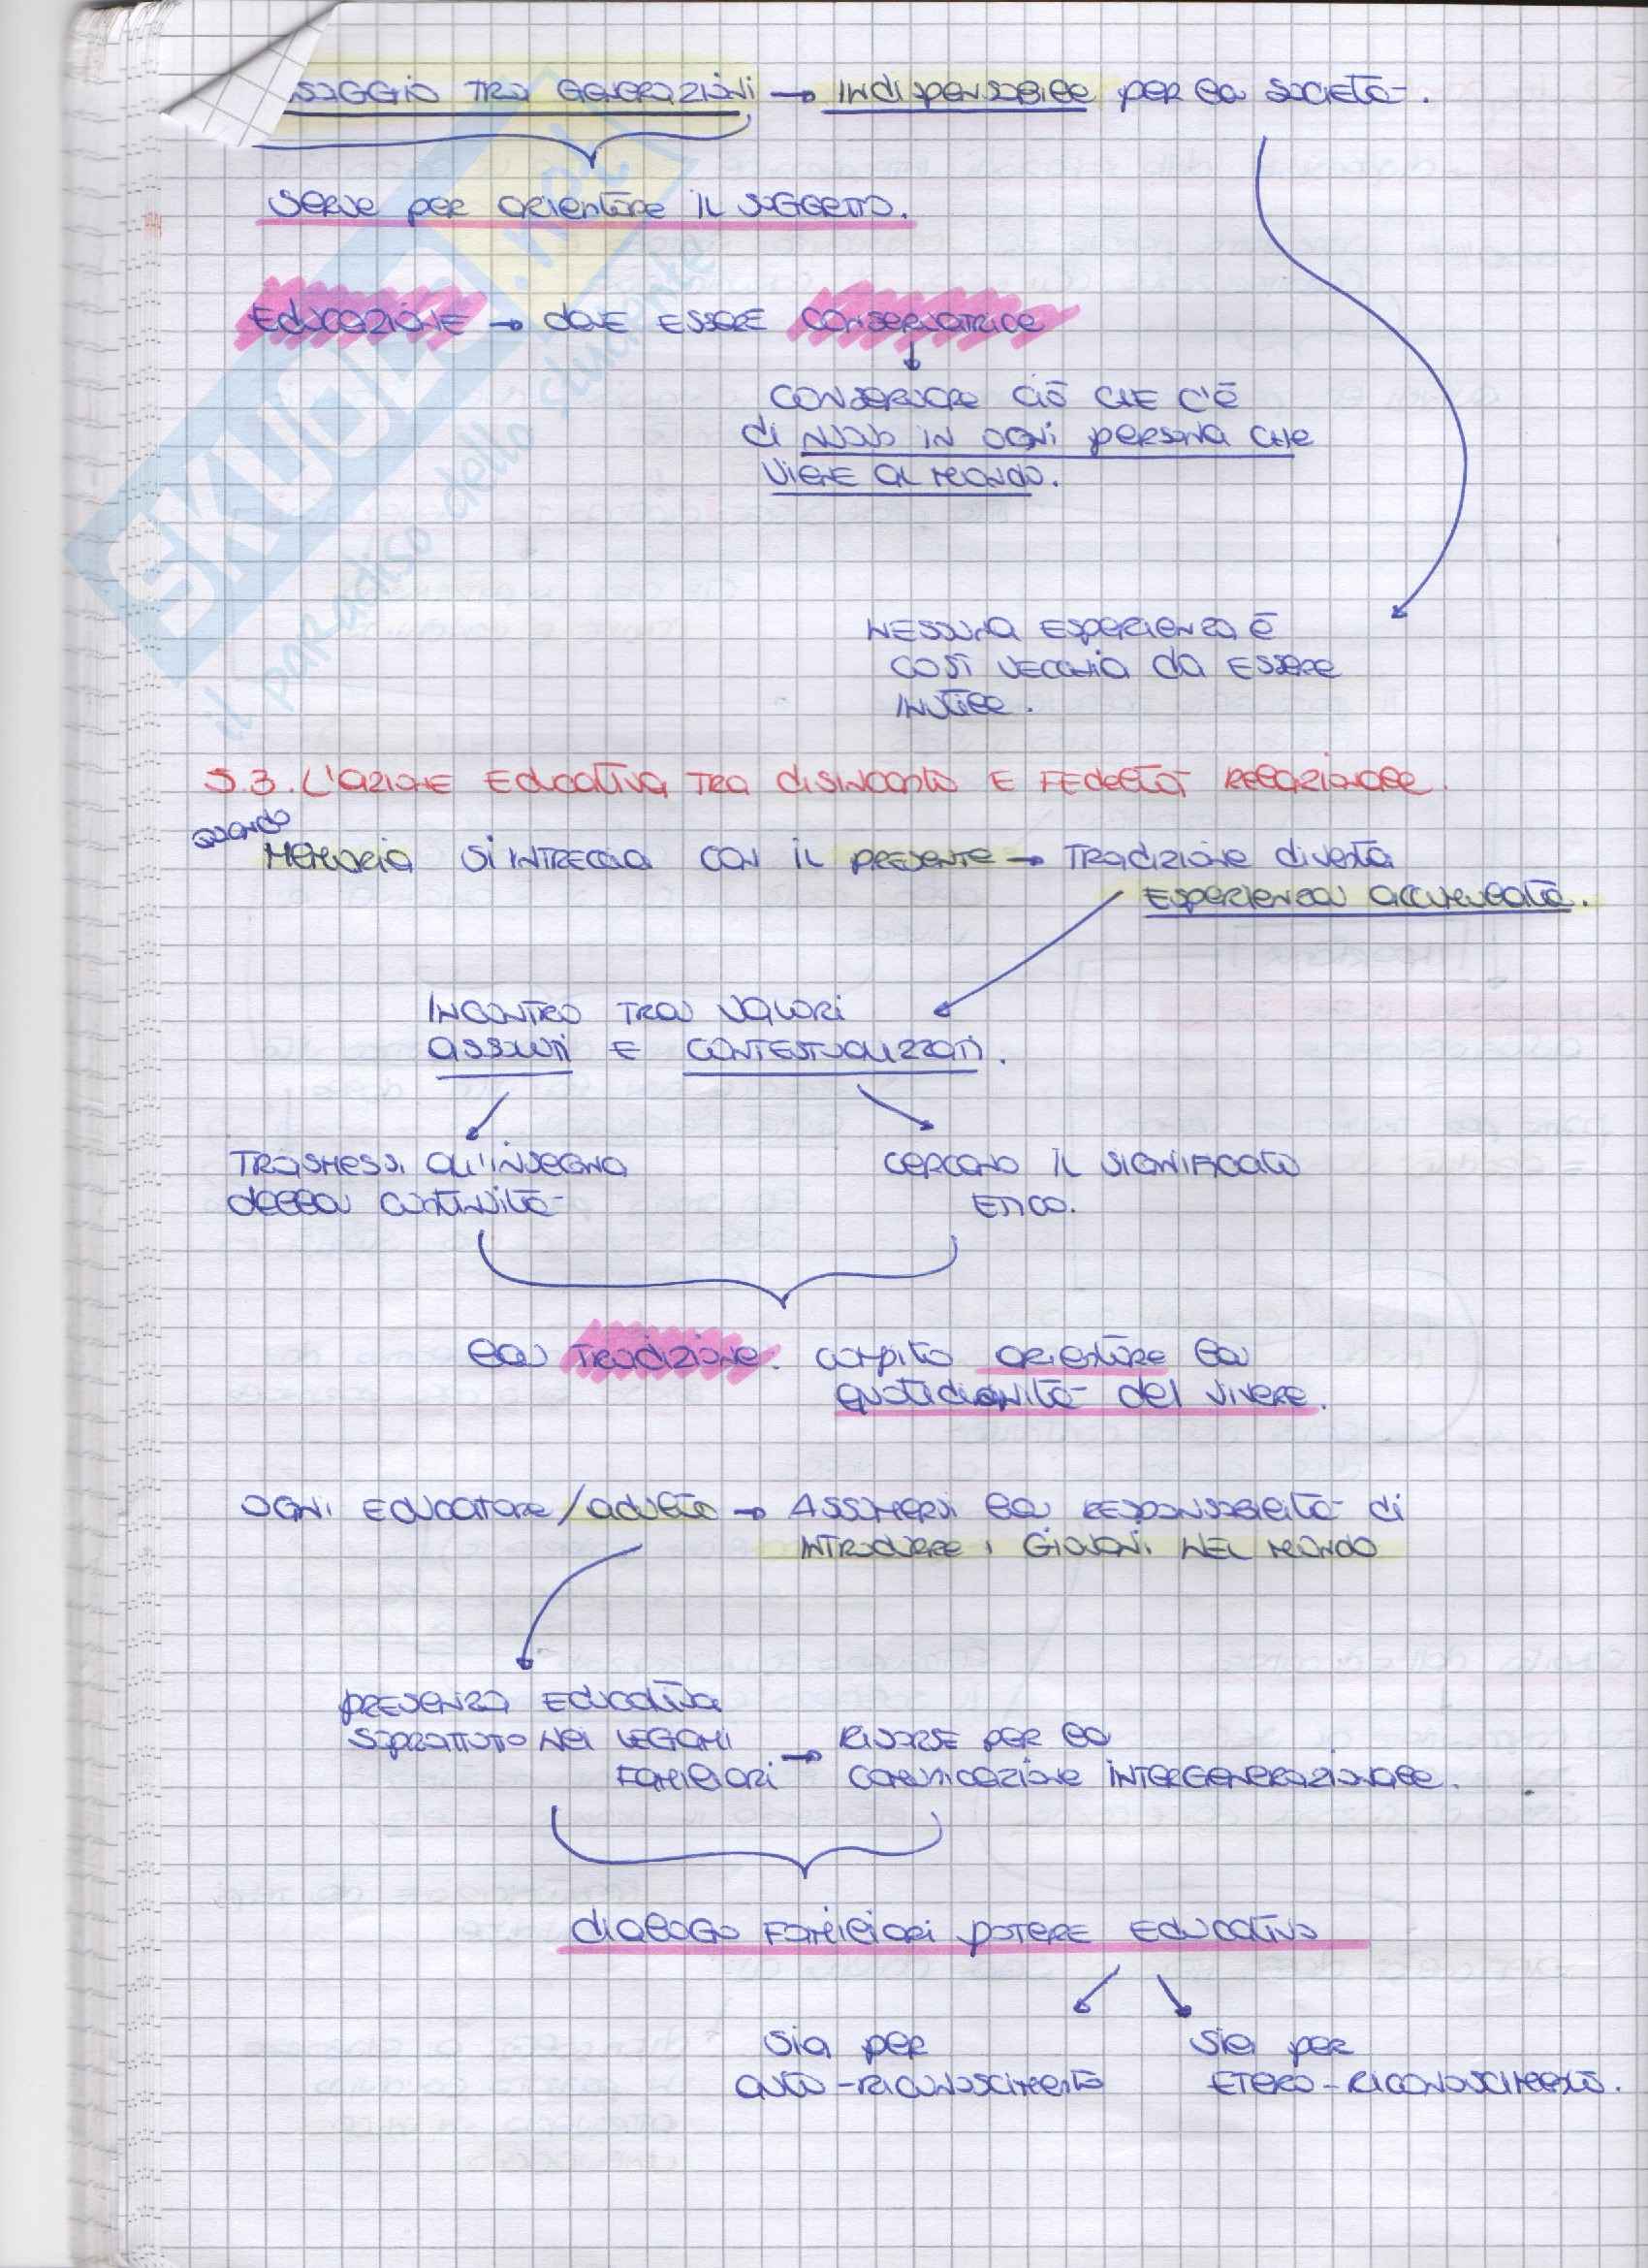 SSAGGIO TRA GENERAZIONI → INDISPENSABILE PER LA SOCIETÀ.
SERVE PER ORIENTARE IL SOGGETTO.
EDUCAZIONE → DEVE ESSERE CONSERVATRICE
CONSERVARE CIÒ CHE C'È
DI NUOVO IN OGNI PERSONA CHE
VIENE AL MONDO.
NESSUNA ESPERIENZA È
COSÌ VECCHIA DA ESSERE
INUTILE.
5.3. L'AZIONE EDUCATIVA TRA DISINCANTO E FEDELTÀ RELAZIONALE.
QUANDO
MEMORIA SI INTRECCIA CON IL PRESENTE → TRADIZIONE DIVENTA
ESPERIENZA ACCUMULATA.
INCONTRO TRA VALORI
ASSUNTI E CONTESTUALIZZATI.
TRASMESSI ALL'INSEGNA
DELLA CONTINUITÀ
CERCANO IL SIGNIFICATO
ETICO.
LA TRADIZIONE: COMPITO ORIENTARE LA
QUOTIDIANITÀ DEL VIVERE.
OGNI EDUCATORE/ADULTO → ASSUMERSI LA RESPONSABILITÀ DI
INTRODURRE I GIOVANI NEL MONDO
PRESENZA EDUCATIVA
SOPRATTUTO NEI LEGAMI
FAMILIARI → RISORSE PER LA
COMUNICAZIONE INTERGENERAZIONALE.
DIALOGO FAMILIARI POTERE EDUCATIVO
SIA PER
AUTO-RICONOSCIMENTO
SIA PER
ETERO-RICONOSCIMENTO.
SKUOLA.net
il paradiso dello studente